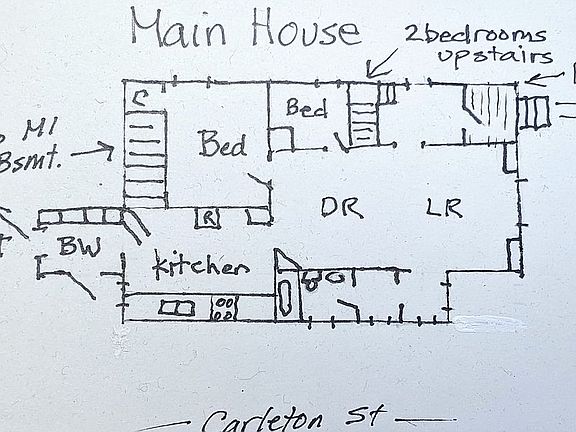 Main House
2bedrooms
upstairs
C
Bed
MI
Bsmt.
Bed
DR
LR
R
BW
kitchen
Carleton St